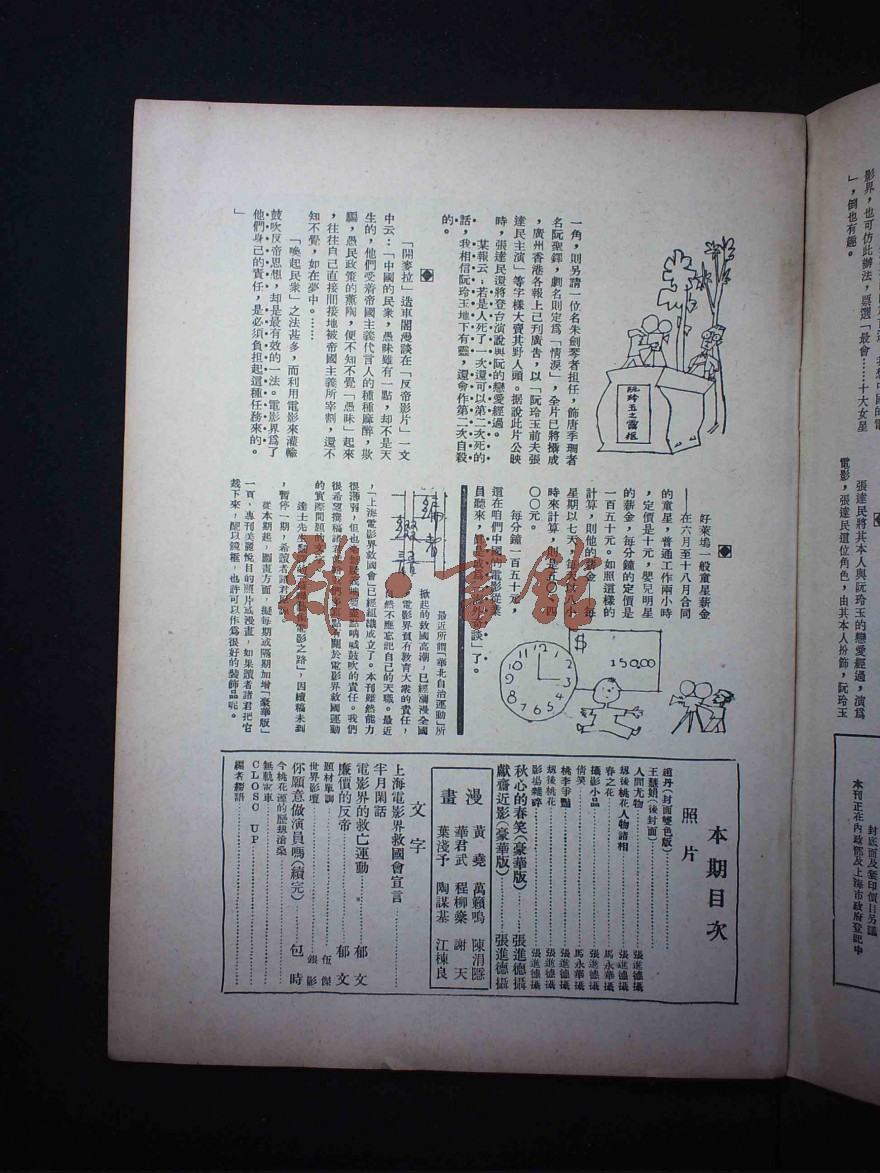 影界，也可仿此辦法，票選「最會……十大女星
」，倒也有趣。
張達民將其本人與阮玲玉的戀愛經過，演爲
電影，張達民這位角色，由其本人扮飾，阮玲玉
封底面及套印價目另議
本刊正在內政部及上海市政府登記中
一角，則另請一位名朱劍琴者担任，飾唐季珊者
名阮聖鐸，劇名則定爲「情淚」，全片已將攝成
，廣州香港各報上已刊廣告，以「阮玲玉前夫張
達民主演」等字樣大賣其野人頭。据說此片公映
時，張達民還將登台演說與阮的戀愛經過。
某報云：若是人死了一次還可以第二次死的
話，我相信阮玲玉地下有靈，還會作第二次自殺
的。
「開麥拉」造車閣漫談在「反帝影片」一文
中云：「中國的民衆，愚昧雖有一點，却不是天
生的，他們受着帝國主義代言人的種種麻醉，欺
騙，愚民政策的薰陶，便不知不覺「愚昧」起來
，往往自己直接間接地被帝國主義所宰割，還不
知不覺，如在夢中。……
「喚起民衆」之法甚多，而利用電影來灌輸
鼓吹反帝思想，却是最有效的一法。電影界爲了
他們身己的責任，是必須負担起這種任務來的。
」
阮玲玉之靈柩
好萊塢一般童星薪金
——在六月至十八月合同
的童星，普通工作兩小時
，定價是十元，嬰兒明星
的薪金，每分鐘的定價是
一百五十元。如照這樣的
計算，則他的薪金，每
星期以七天，每天以八小
時來計算，則是五〇四
〇〇元。
每分鐘一百五十元，
這在咱們中國的電影從業
員聽來，眞是成爲「海外奇談」了。
$
150.00
12
1
2
3
4
5
6
7
8
9
10
11
編者綴語
最近所謂「華北自治運動」所
掀起的救國高潮，已經瀰漫全國
電影界負有敎育大衆的責任，
自然不應忘記自己的天職。最近
，「上海電影界救國會」已經組織成立了。本刊雖然能力
很薄弱，但也
很希望撰稿諸君
的實際問題的文
達士先生
電影之路」，因續稿未到
，暫停一期，希讀者諸君原諒
從本期起，圖畫方面，擬每期或隔期加增「豪華版」
一頁，專刊美麗悅目的照片或漫畫，如果讀者諸君把它
裁下來，配以鏡框，也許可以作爲很好的裝飾品呢。
本期目次
照片
趙丹（封面雙色版）
王騷娟（後封面）
人間尤物……張進德攝
刼後桃花人物諸相……張進德攝
春之花……馬永華攝
攝影小品……張進德攝
倩笑……馬永華攝
桃李爭豔……張進德攝
刼後桃花……張進德攝
影場雜碎……張進德攝
秋心的春笑（豪華版）……張進德攝
獻齋近影（豪華版）……張進德攝
漫畫
黃堯 萬籟鳴 陳涓隱
華君武 程柳燊 謝天
葉淺予 陶謀基 江棟良
文字
上海電影界救國會宣言
半月閑話
電影界的救亡運動……郁文
廉價的反帝……郁文
題材單調……伍傑
世界影壇……銀影
你願意做演員嗎（續完）……包時
今桃花源的歷刼滄桑
無軌電車
CLOSC UP
編者綴語
雜·書館